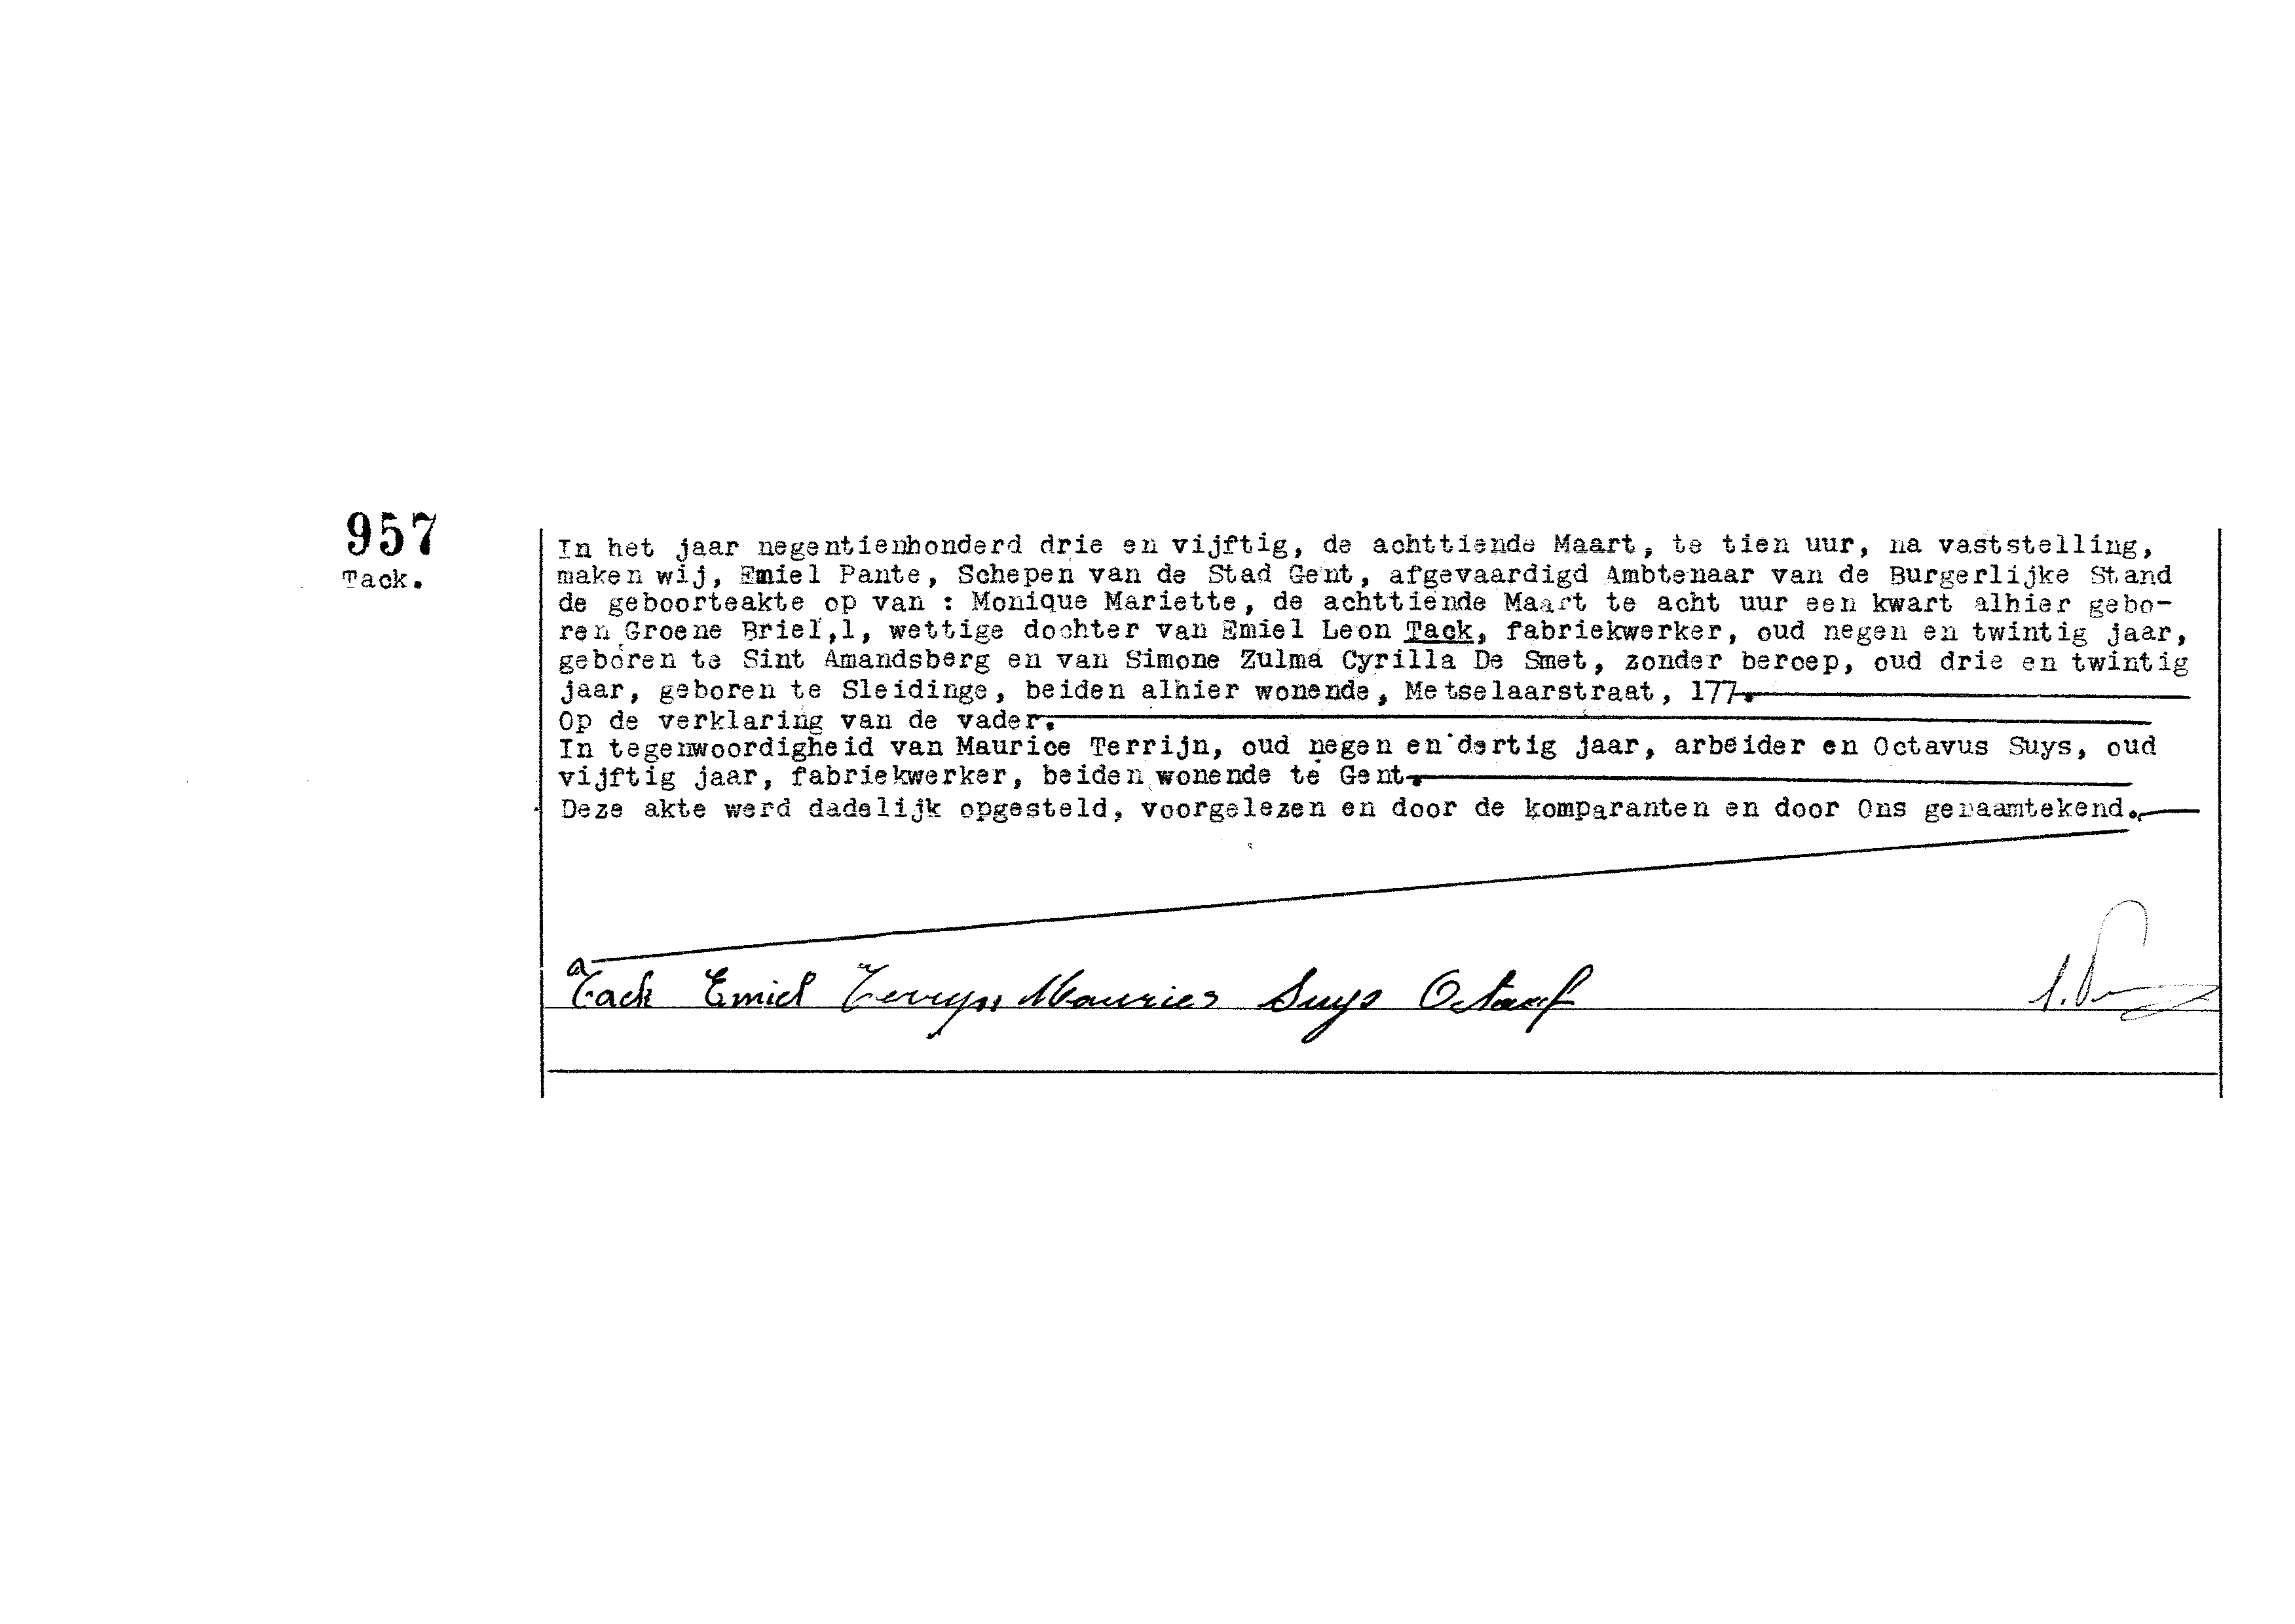 957
Tack.
In het jaar negentienhonderd drie en vijftig, de achttiende Maart, te tien uur, na vaststelling,
maken wij, Emiel Pante, Schepen van de Stad Gent, afgevaardigd Ambtenaar van de Burgerlijke Stand
de geboorteakte op van : Monique Mariette, de achttiende Maart te acht uur een kwart alhier gebo-
ren Groene Briel,1, wettige dochter van Emiel Leon Tack, fabriekwerker, oud negen en twintig jaar,
geboren te Sint Amandsberg en van Simone Zulma Cyrilla De Smet, zonder beroep, oud drie en twintig
jaar, geboren te Sleidinge, beiden alhier wonende, Metselaarstraat, 177.
Op de verklaring van de vader.
In tegenwoordigheid van Maurice Terrijn, oud negen en dertig jaar, arbeider en Octavus Suys, oud
vijftig jaar, fabriekwerker, beiden wonende te Gent.
Deze akte werd dadelijk opgesteld, voorgelezen en door de komparanten en door Ons genaamtekend.
Tack Emiel Terryn Mauries Suys Octaaf